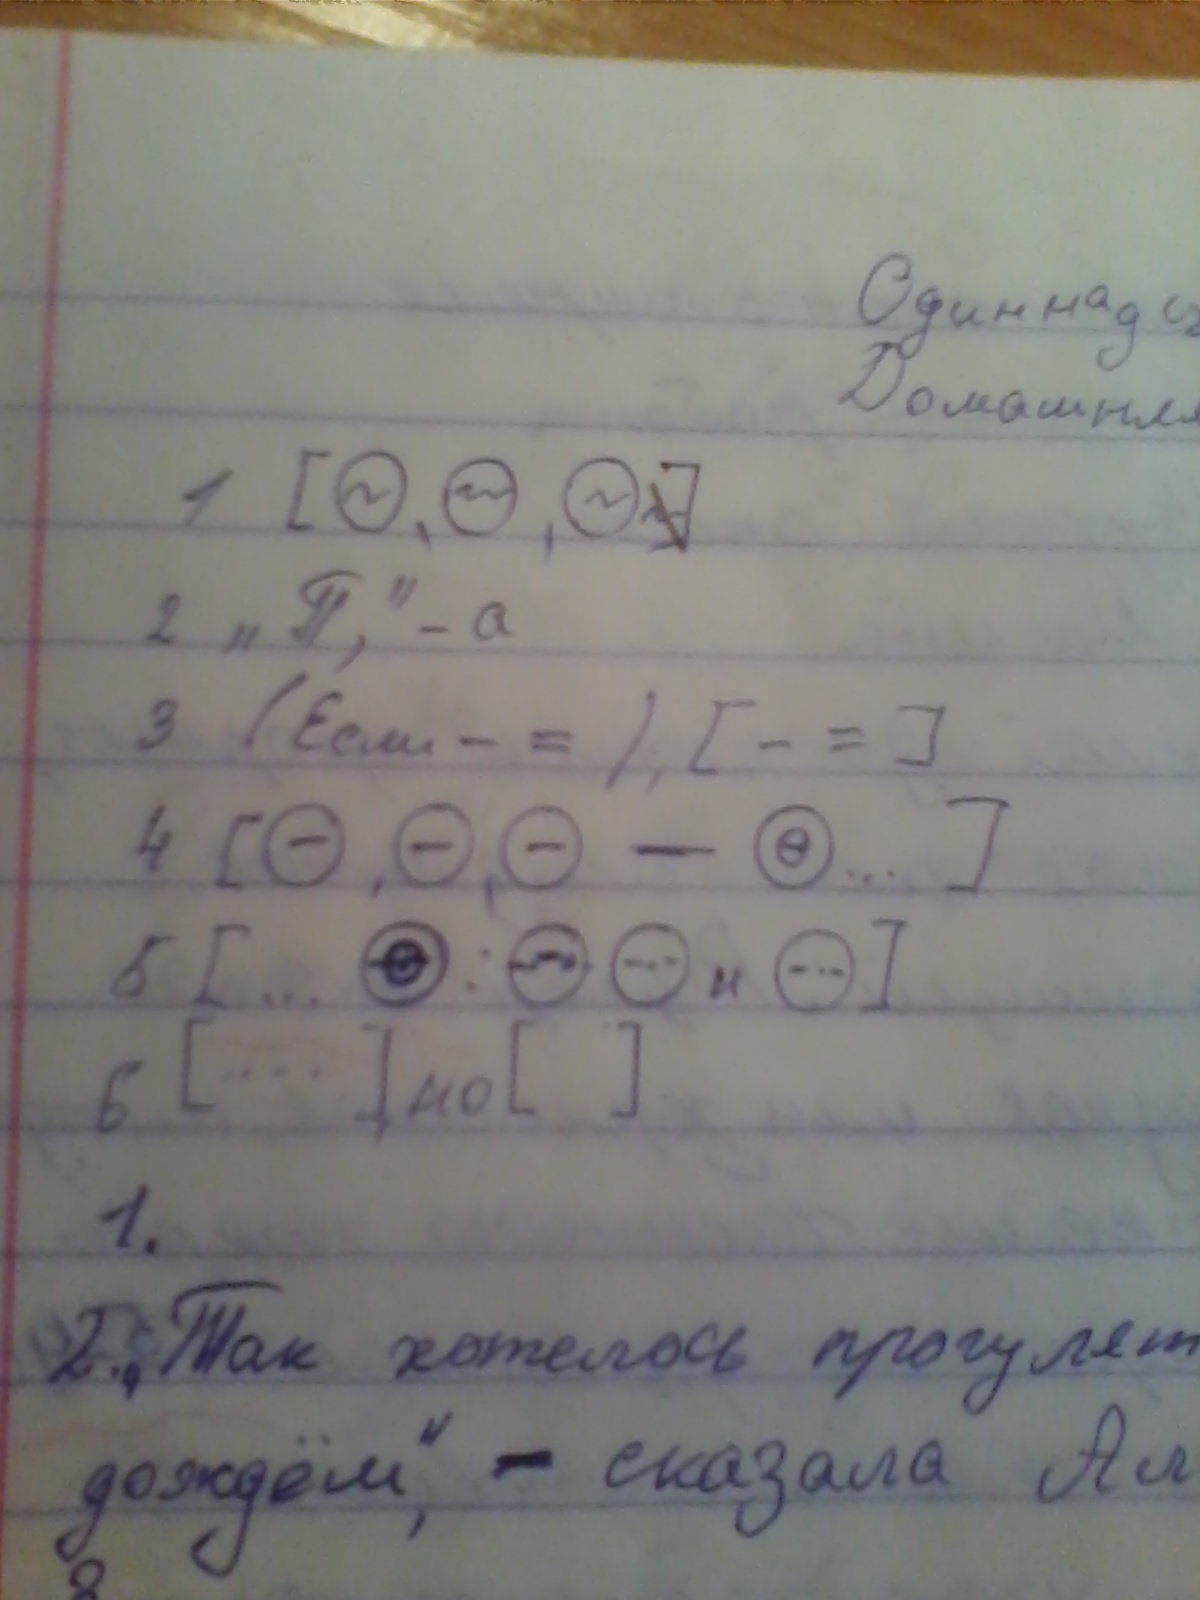 Одиннадц
Домашняя
1 [~, ~, ~]
2 „П," – а
3 (Если – = ), [ – = ]
4 [–, –, – — ...]
5 [... : и ]
6 [.... ], но [ ]
1.
2. „Так хотелось прогулят
дождём", – сказала Ал